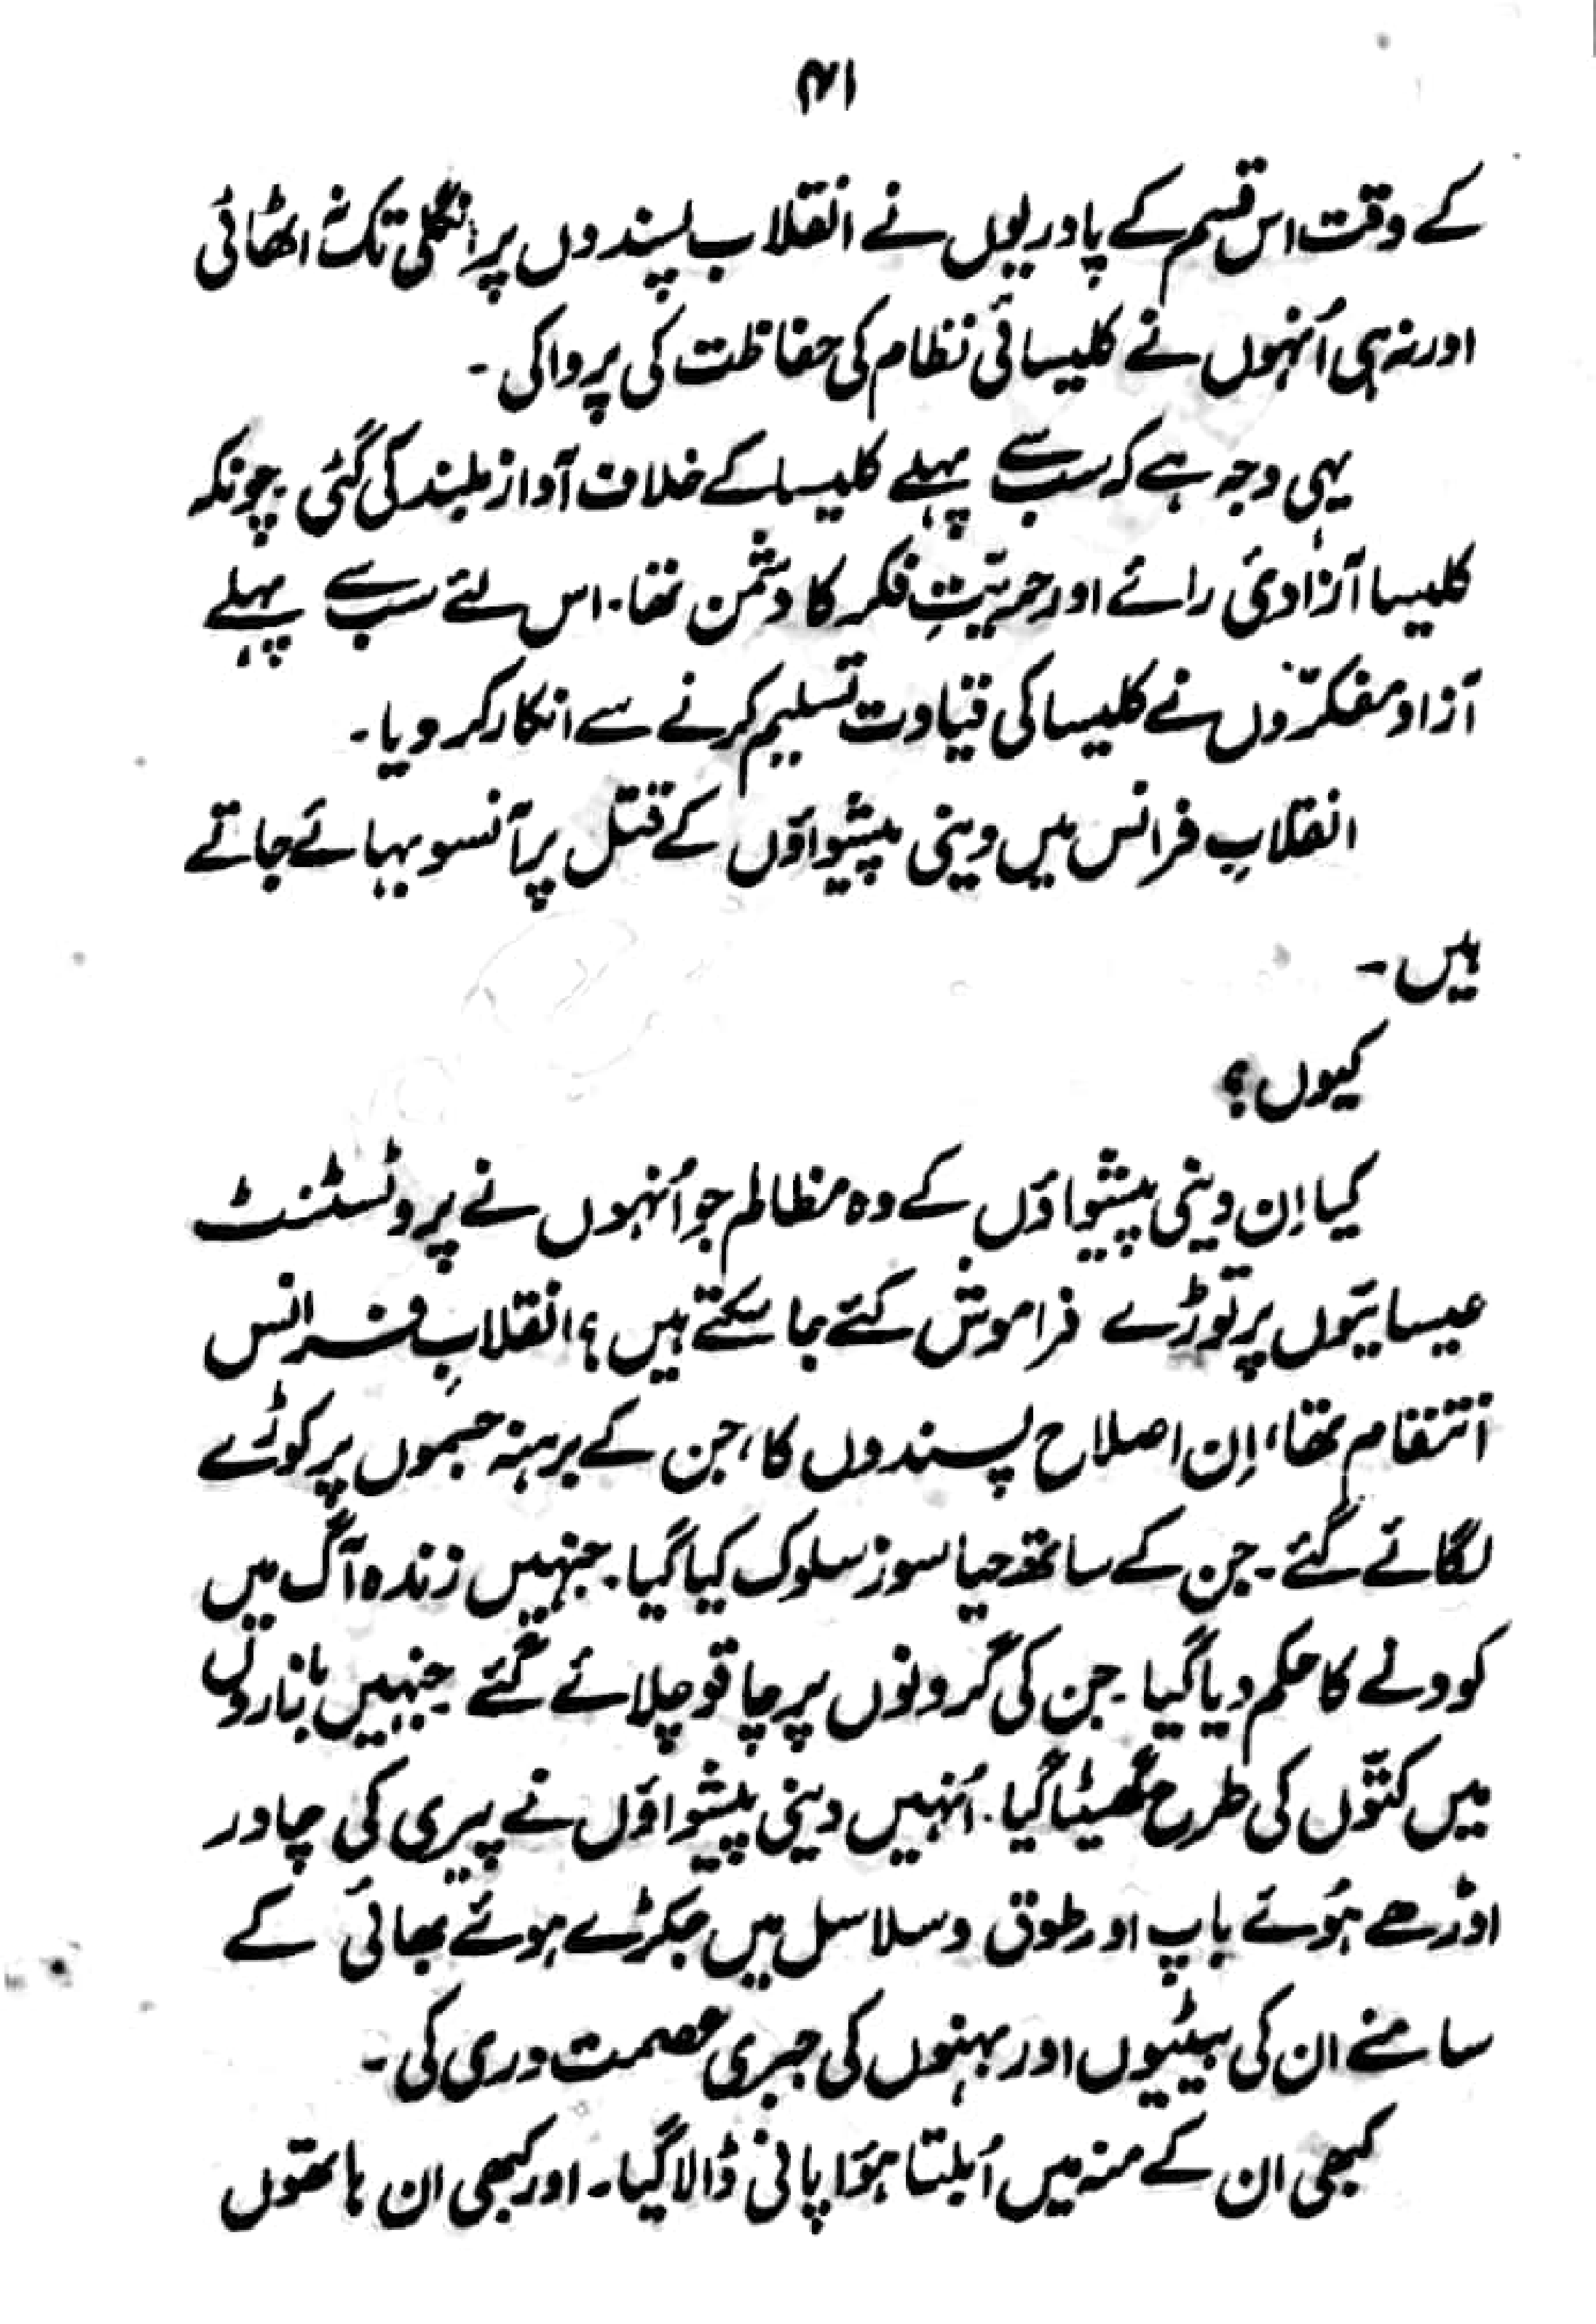 ۴۱
کے وقت اس قسم کے پادریوں نے انقلاب پسندوں پر انگلی تک نہ اٹھائی
اور نہ ہی اُنہوں نے کلیسائی نظام کی حفاظت کی پروا کی ۔
یہی وجہ ہے کہ سب سے پہلے کلیسا کے خلاف آواز بلند کی گئی ۔ چونکہ
کلیسا آزادیٔ رائے اور حریّتِ فکر کا دشمن تھا ۔ اس لئے سب سے پہلے
آزاد مفکرّوں نے کلیسا کی قیادت تسلیم کرنے سے انکار کر دیا ۔
انقلابِ فرانس میں دینی پیشواؤں کے قتل پر آنسو بہائے جاتے
ہیں ۔
کیوں؟
کیا اِن دینی پیشواؤں کے وہ مظالم جو اُنہوں نے پروٹسٹنٹ
عیسائیوں پر توڑے فراموش کئے جا سکتے ہیں؟ انقلابِ فرانس
انتقام تھا، اِن اصلاح پسندوں کا، جن کے برہنہ جسموں پر کوڑے
لگائے گئے ۔ جن کے ساتھ حیا سوز سلوک کیا گیا ۔ جنہیں زندہ آگ میں
کودنے کا حکم دیا گیا ۔ جن کی گردنوں پر چاقو چلائے گئے ۔ جنہیں بازاروں
میں کتّوں کی طرح گھسیٹا گیا ۔ اُنہیں دینی پیشواؤں نے پیری کی چادر
اوڑھے ہُوئے باپ اور طوق و سلاسل میں جکڑے ہوئے بھائی کے
سامنے ان کی بیٹیوں اور بہنوں کی جبری عصمت دری کی ۔
کبھی ان کے منہ میں اُبلتا ہؤا پانی ڈالا گیا ۔ اور کبھی ان ہاتھوں